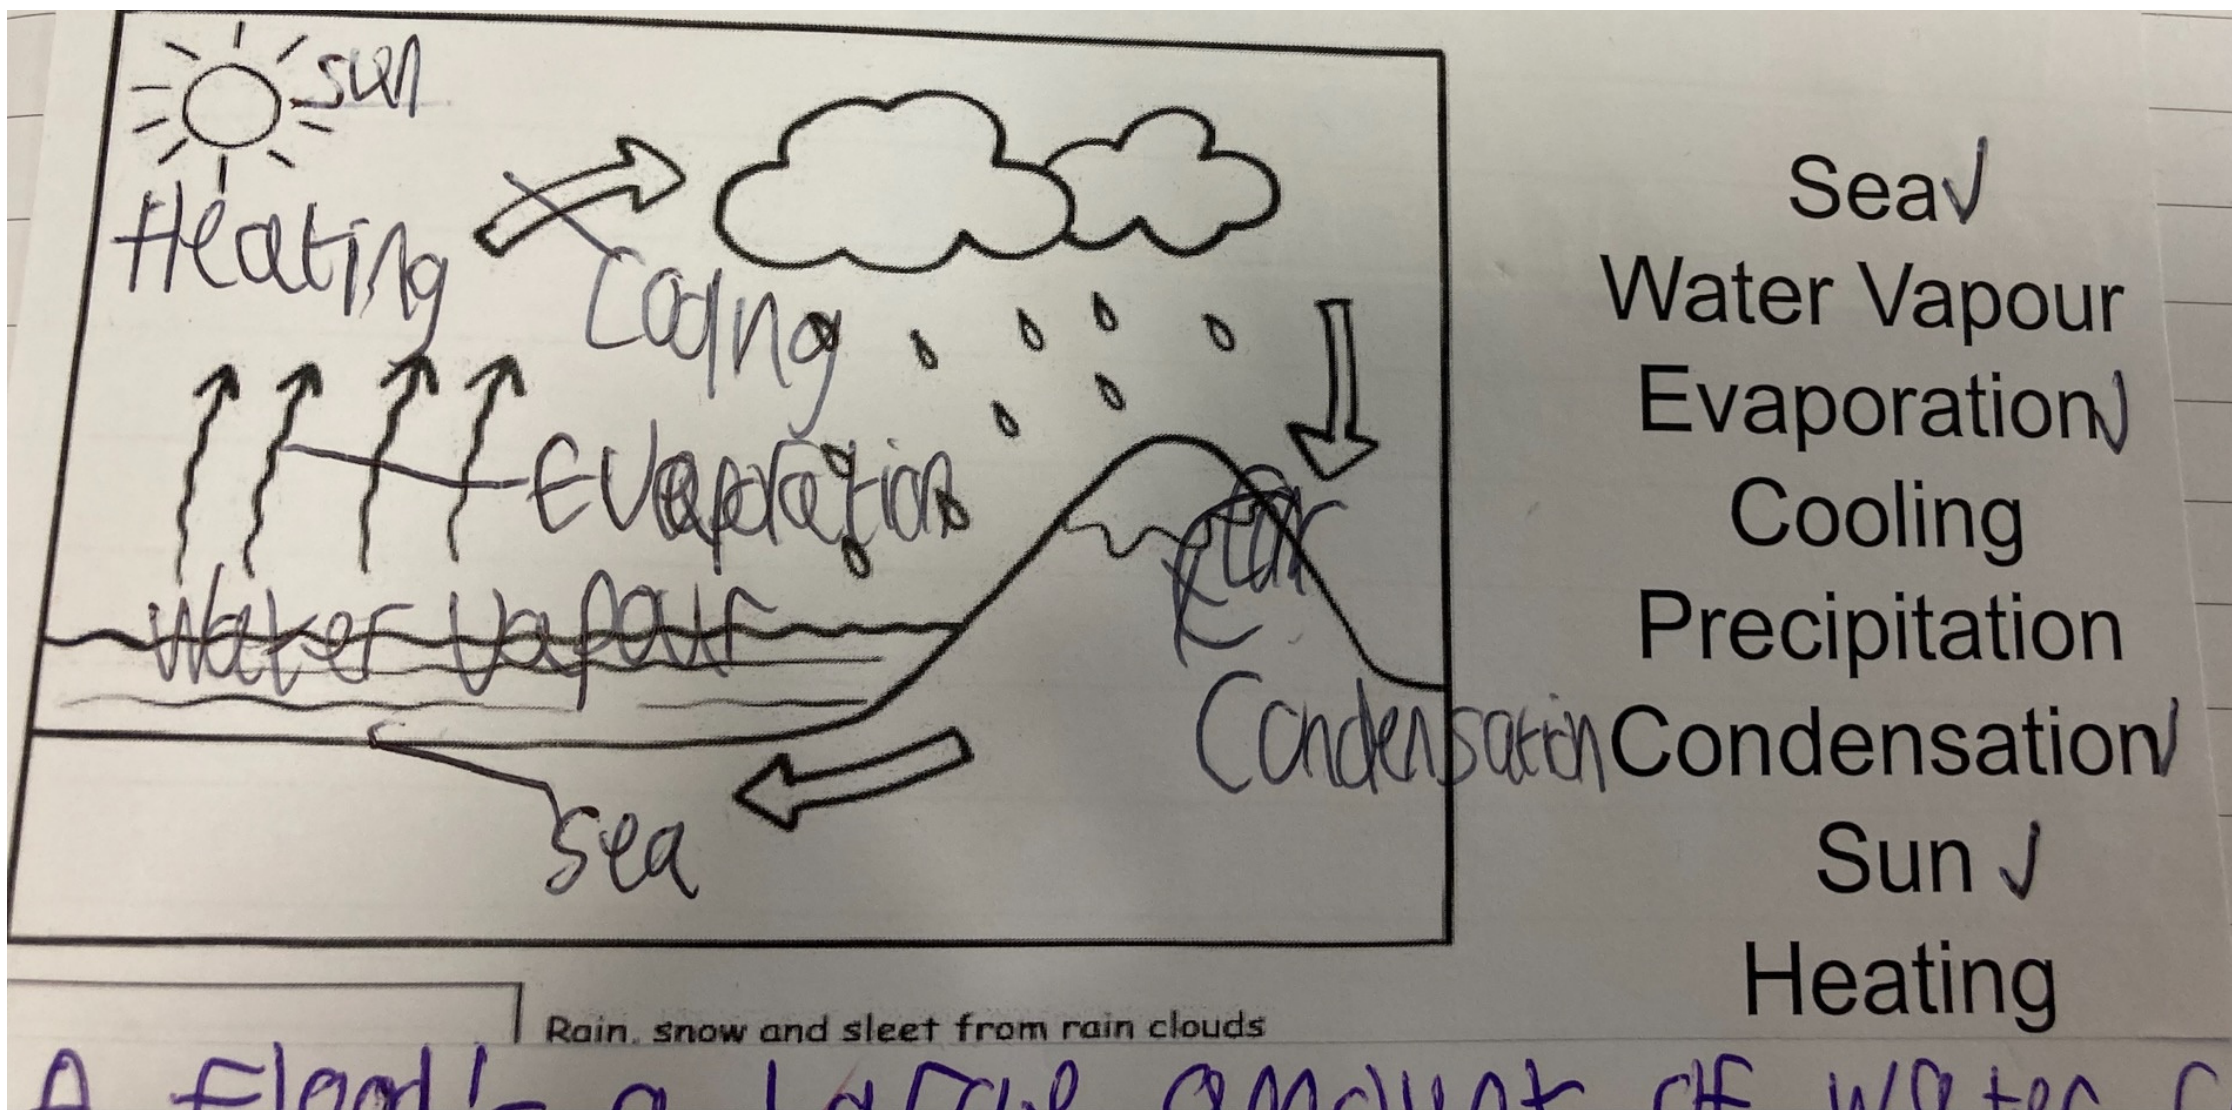 sun
Heating
Cooling
Evaporation
Water Vapour
Condensation
Sea
Sea
Water Vapour
Evaporation
Cooling
Precipitation
Condensation
Sun
Heating
Rain, snow and sleet from rain clouds
A flood is a large amount of water